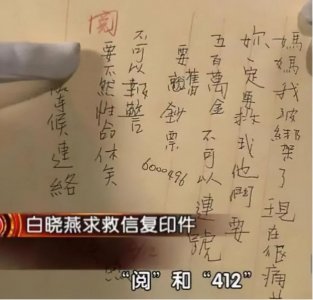 媽媽我被綁架了 現在很痛苦
妳一定要救我他們要
五百萬金 不可以連號
要舊鈔票 6000496
不可以報警
要不然性命休矣
候連絡
閱
白晓燕求救信复印件
“阅”和“412”